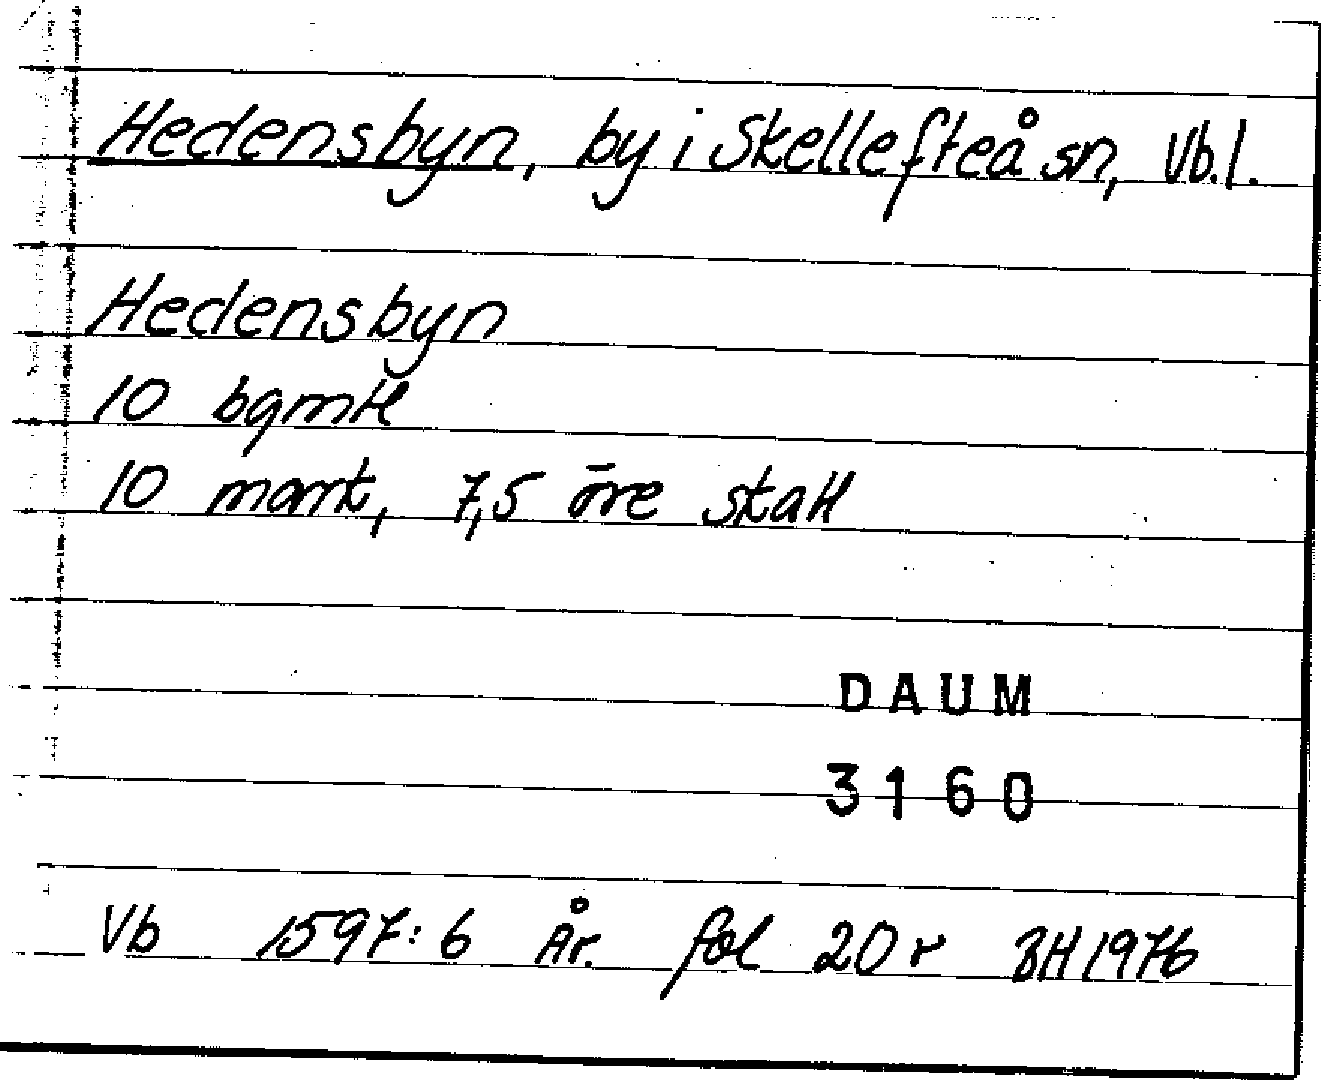 Hedensbyn, by i Skellefteå sn, Vb.l.
Hedensbyn
10 bgmtl
10 mamt, 7,5 öre skatt
DAUM
3160
Vb 1597:6 År. fol 20 r BH 1976